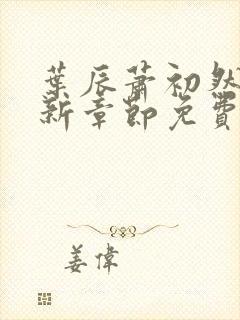 葉辰蕭初然
新章節免費
姜偉